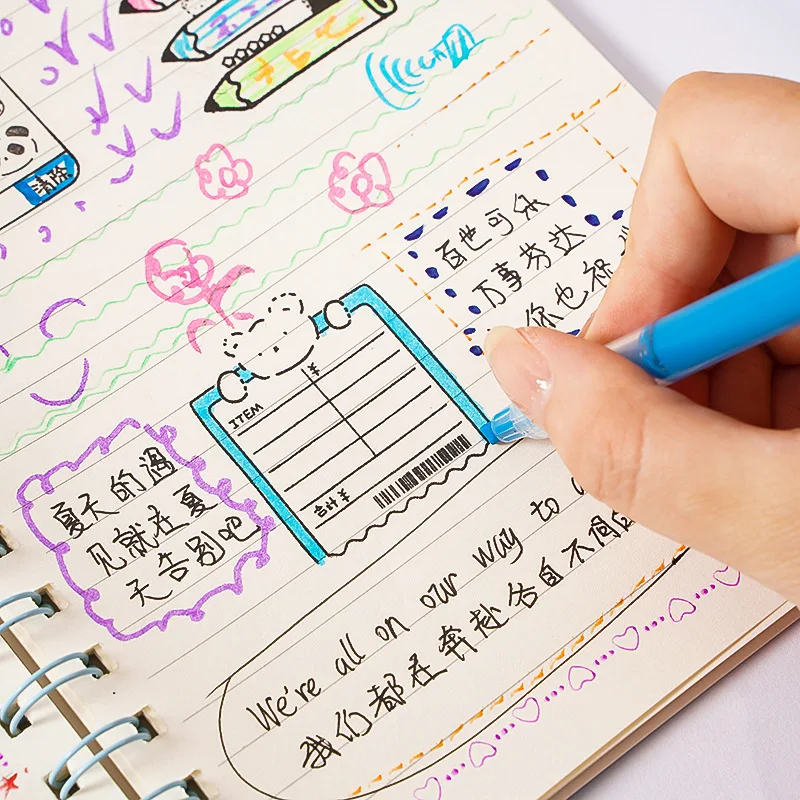 清除
百世可乐
万事芬达
你也祢
ITEM
¥
合计¥
夏天的遇
见就在夏
天告别吧
We're all on our way to
我们都在奔赴各自不同